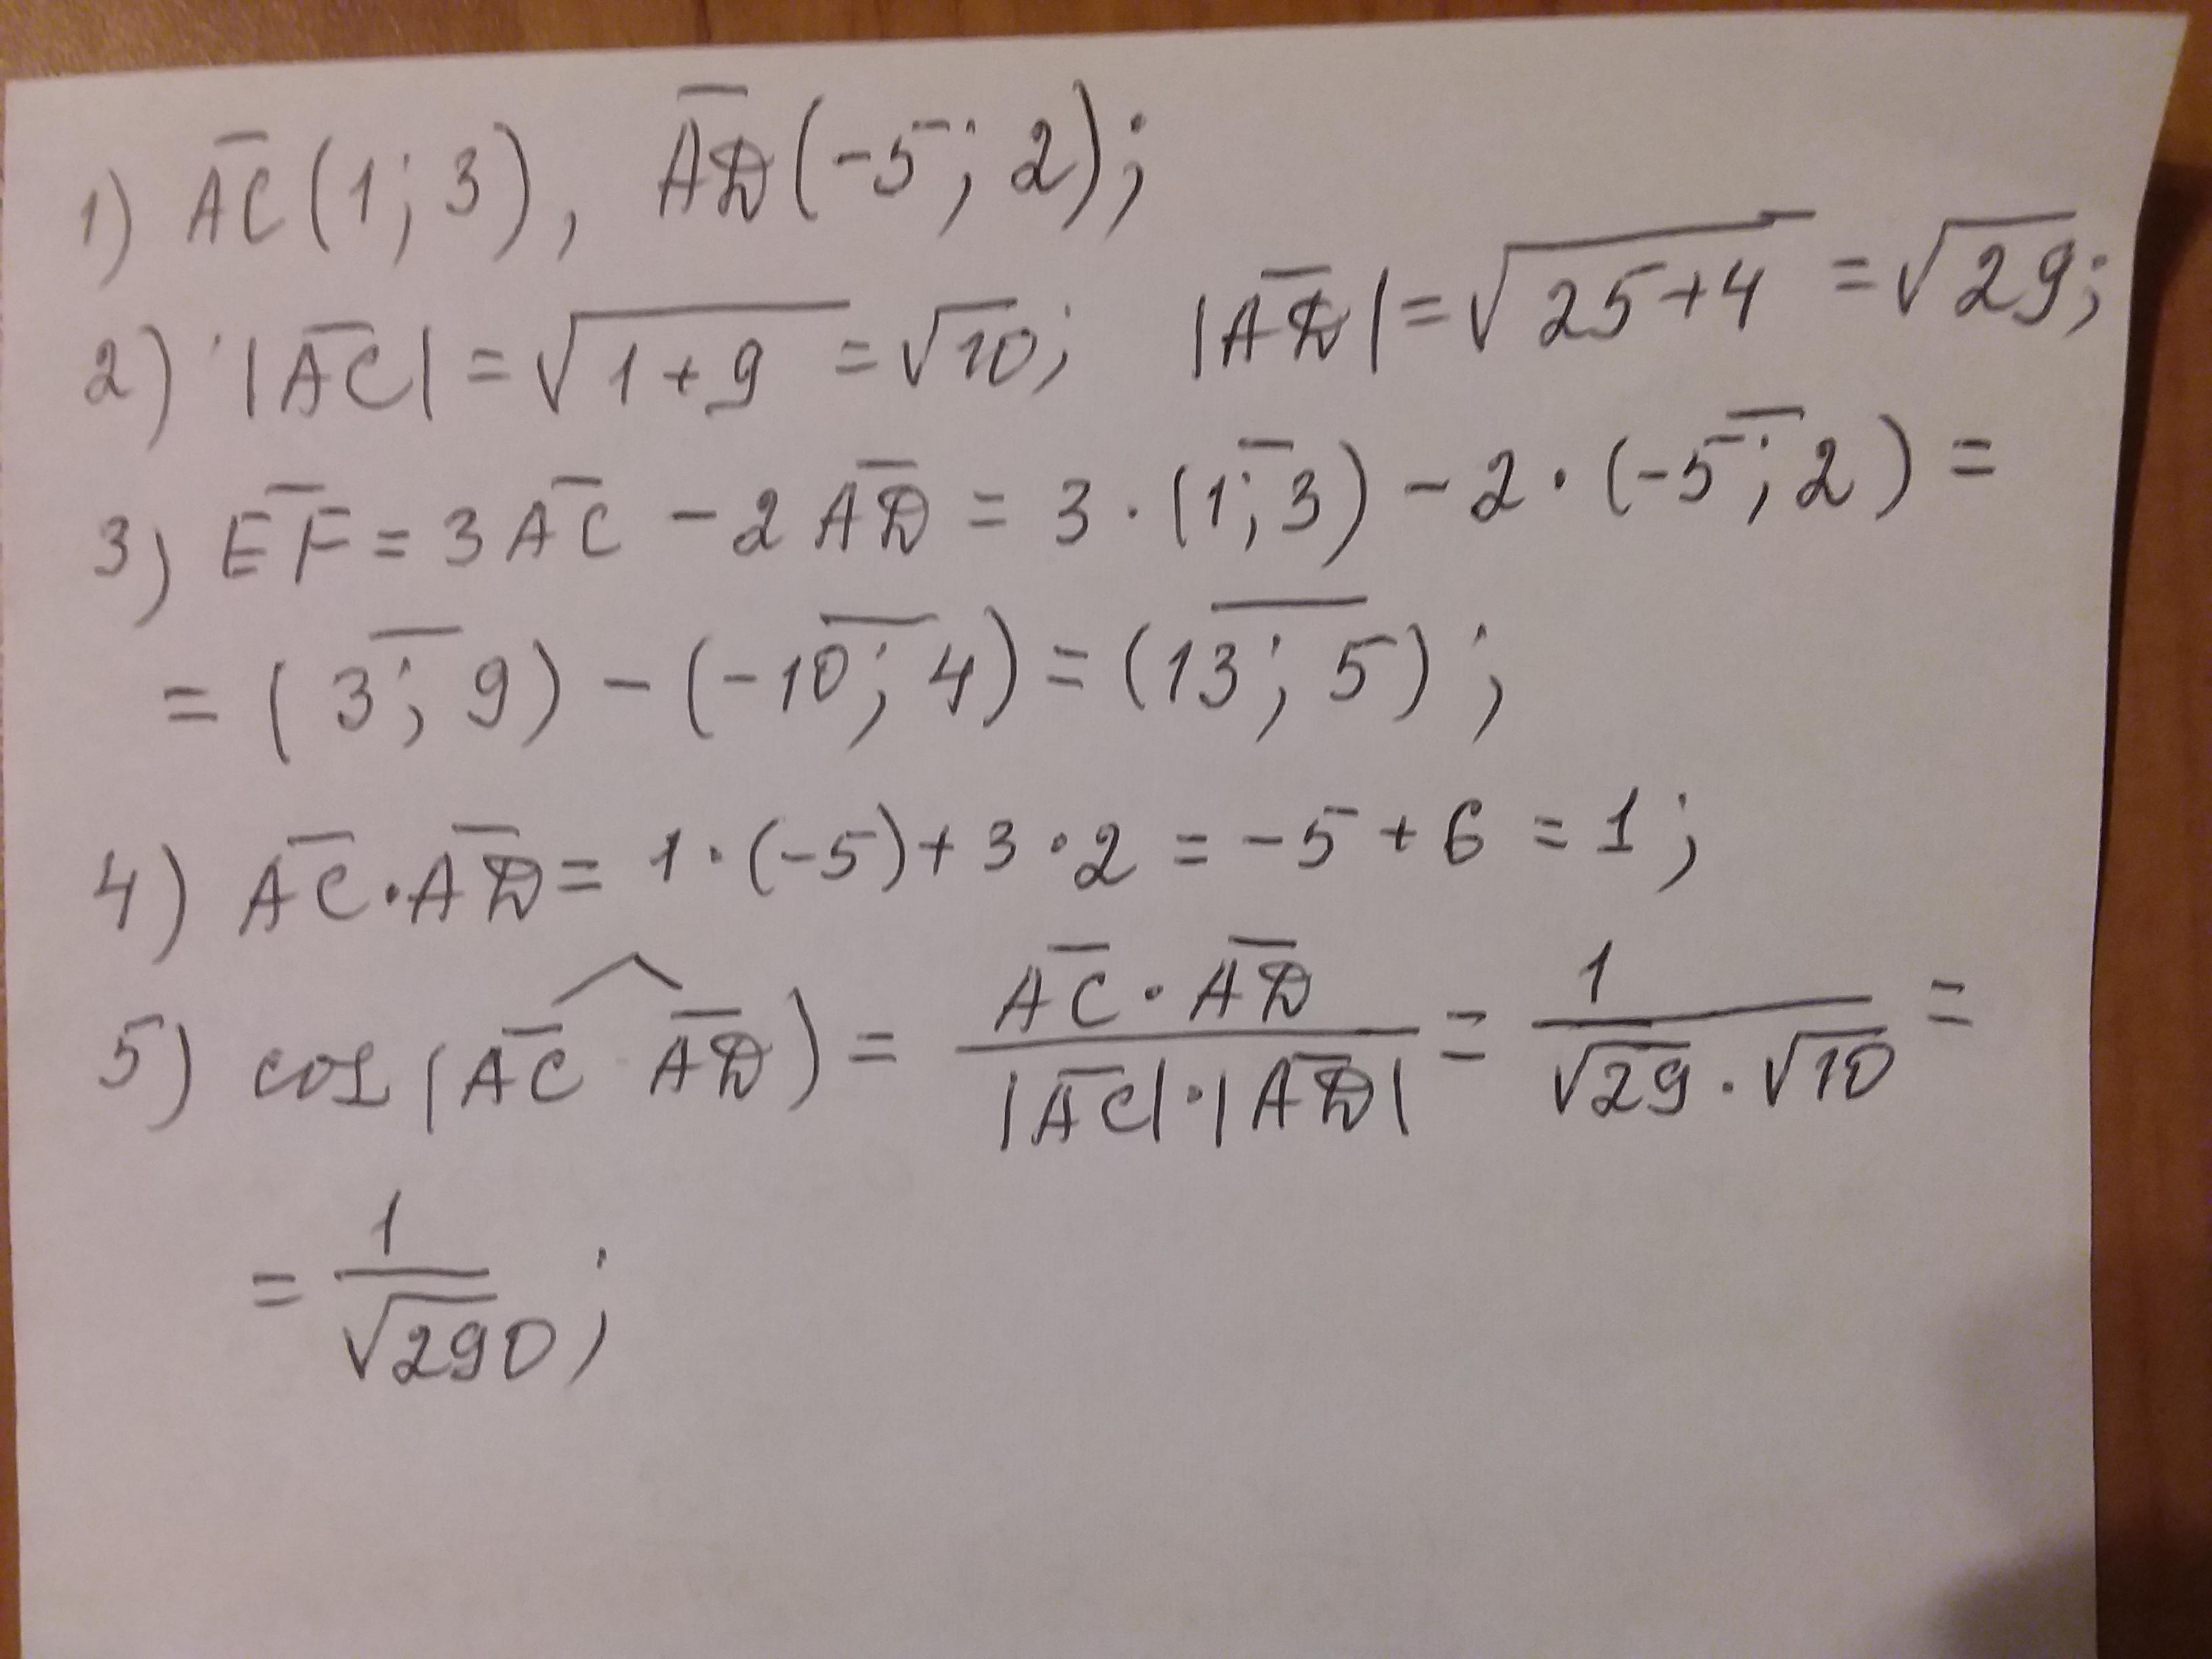 1) A̅C̅(1; 3), A̅D̅(-5; 2);
2) |A̅C̅| = √(1+9) = √10; |A̅D̅| = √(25+4) = √29;
3) E̅F̅ = 3A̅C̅ - 2A̅D̅ = 3·(1; 3) - 2·(-5; 2) =
= (3; 9) - (-10; 4) = (13; 5);
4) A̅C̅·A̅D̅ = 1·(-5)+3·2 = -5+6 = 1;
5) cos(A̅C̅ ^ A̅D̅) = A̅C̅·A̅D̅ / |A̅C̅|·|A̅D̅| = 1 / √29·√10 =
= 1 / √290;